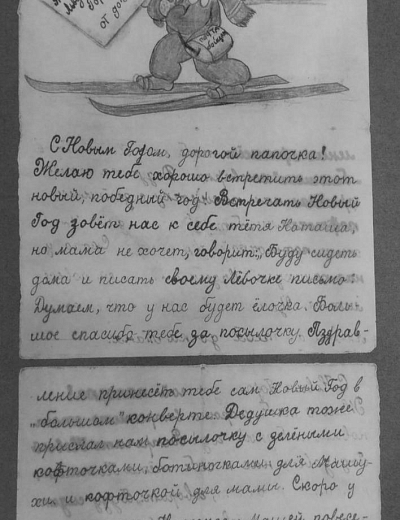 от до
почта
С Новым Годом, дорогой папочка!
Желаю тебе хорошо встретить этот
новый, победный год! Встречать Новый
Год зовёт нас к себе тётя Наташа,
но мама не хочет, говорит: „Буду сидеть
дома и писать своему Лёвочке письмо".
Думаем, что у нас будет ёлочка. Боль-
шое спасибо тебе за посылочку. Аздрав-
ление принесёт тебе сам Новый Год в
„большом" конверте. Дедушка тоже
прислал нам посылочку с зелёными
кофточками, ботиночками для
хи и кофточкой для мамы. Скоро у
нашей